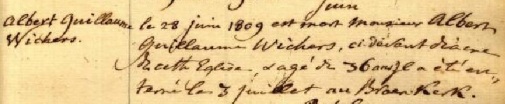 juin
Albert Guillaume
Wichers.
le 28 juin 1809 est mort Monsieur Albert
Guillaume Wichers, ci devant diacre
Eglise, agé de 36 ans, il a été en-
terré le 3 juillet au Broerkerk.